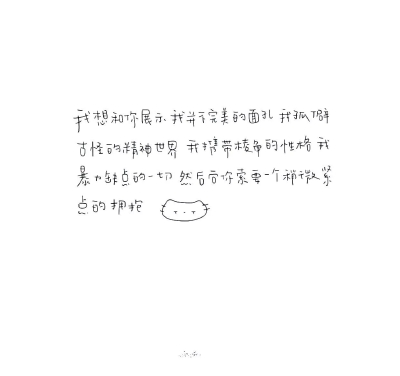 我想和你展示 我并不完美的面孔 我孤僻
古怪的精神世界 我携带棱角的性格 我
暴力缺点的一切 然后向你索要一个稍微紧
点的拥抱